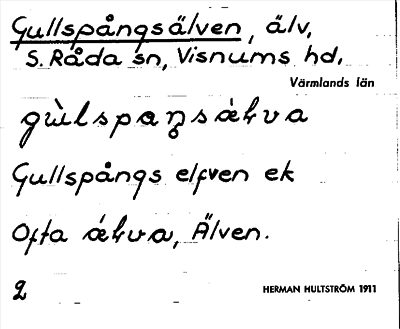 Gullspångsälven, älv,
S. Råda sn, Visnums hd.
Värmlands län
Gullspångs elfven ek
Ofta Älven.
HERMAN HULTSTRÖM 1911